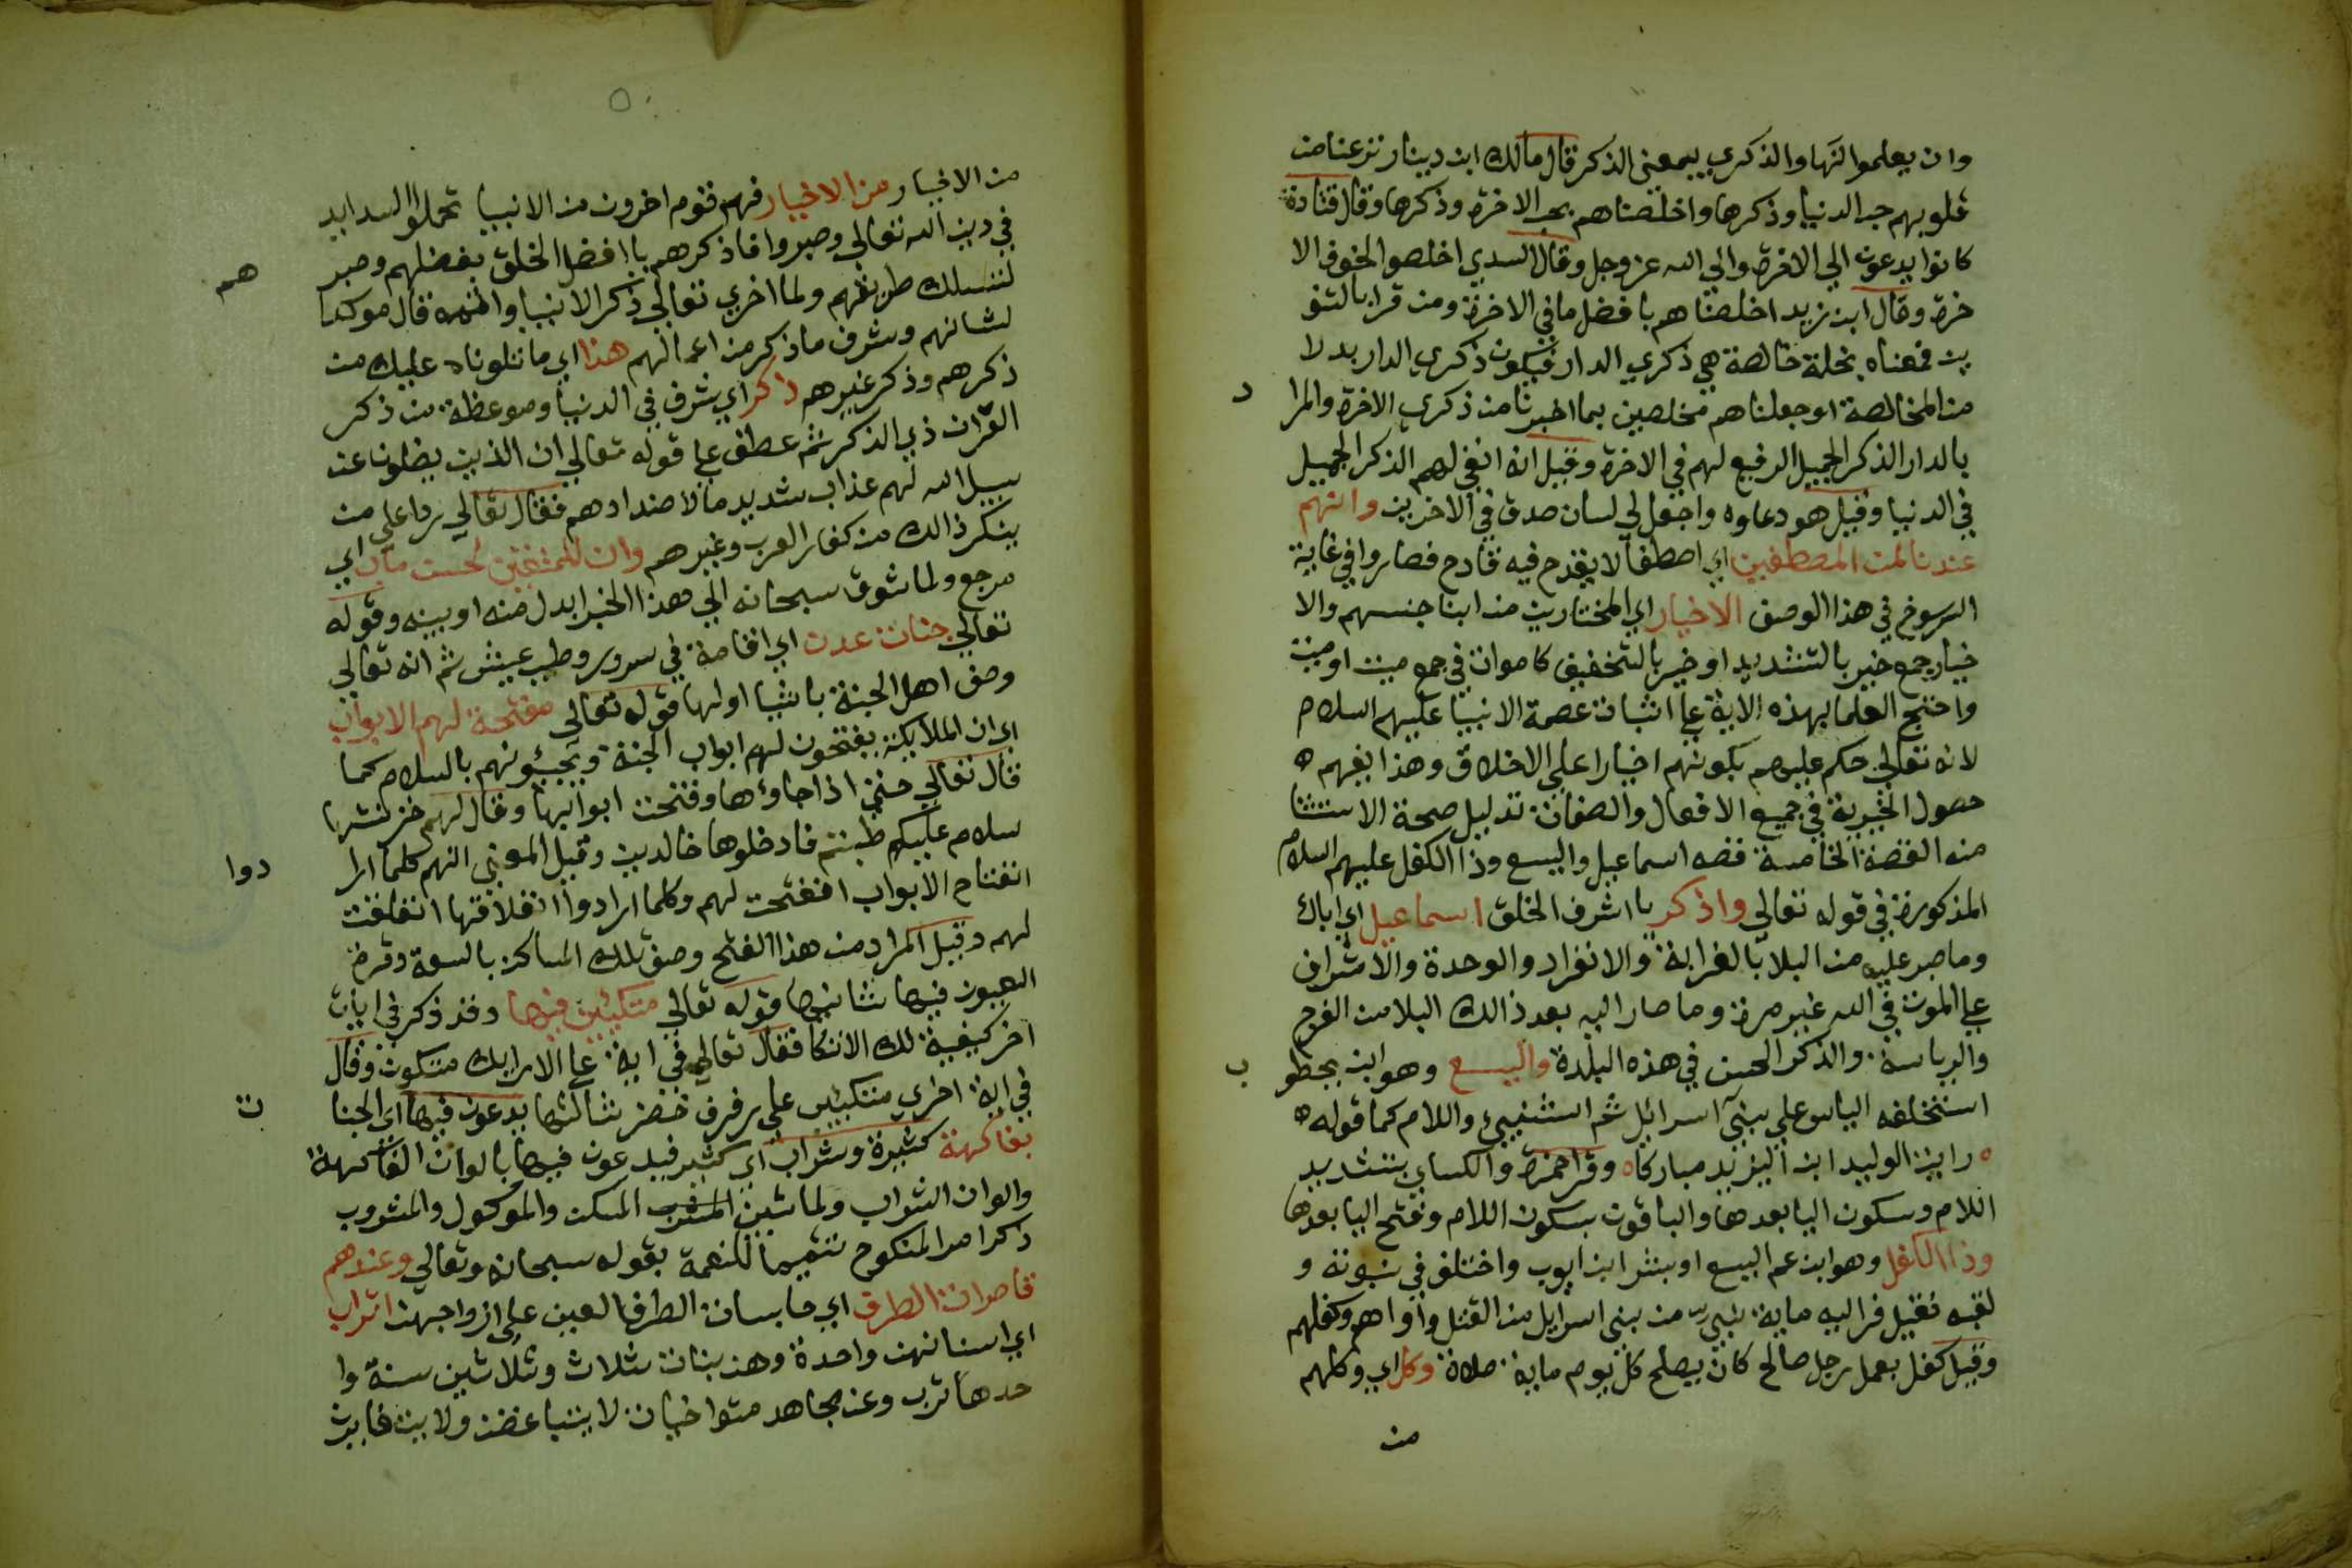 وان يعلموا لنها والذكري بمعني الذكر قال مالك ابن دينار نزعنا من
قلوبهم حب الدنيا وذكرها واخلصناهم بحب الاخرة وذكرها وقال قتادة
كانوا يدعون الي الاخرة والي الله عز وجل وقال السدي اخلصوا لخوف الا
خرة وقال ابن زيد اخلصناهم بافضل ما في الاخرة ومن قرا بالتنو
ين فمعناه بخلة خالصة هي ذكري الدار فيكون ذكري الدار بدلا
من المخالصة او جعلناهم مخلصين بما اخبرنا من ذكري الاخرة والمرا د
بالدار الذكر الجميل الرفيع لهم في الاخرة وقيل انه ابقي لهم الذكر الجميل
في الدنيا وقيل هو دعاوه واجعل لي لسان صدق في الاخرين وانهم
عندنا لمن المصطفين اي اصطفا لا يقدح فيه قادح فصاروا في غاية
الرسوخ في هذا الوصف الاخيار اي المختارين من ابنا جنسهم والا
خيار جمع خير بالتشديد او خير بالتخفيف كاموات في جمع ميت او ميت
واحتج العلما بهذه الاية علي اثبات عصمة الانبيا عليهم السلام
لانه تعالي حكم عليهم بكونهم اخيارا علي الاخلاق وهذا يفهم ه
حصول الخيرية في جميع الافعال والصفات تدليل صحة الاستثنا
منه القصة الخامسة قصه اسماعيل واليسع وذا الكفل عليهم السلام
المذكورة في قوله تعالي واذكر يا اشرف الخلق اسماعيل اي اباك
وما صبر عليه من البلا بالغرابة والانفراد والوحدة والاشراف
علي الموت في الله غير مرة وما صار اليه بعد ذالك البلا من الفرج
والرياسة والذكر الحسن في هذه البلدة واليسع وهو ابن يخطو ب
استخلفه الياس علي بني اسرائيل ثم استنبيئ واللام كما قوله ه
ه رايت الوليد ابن اليزيد مباركا ه وقرا حمزة والكساي بتشديد
اللام وسكون اليا بعدها والباقون بسكون اللام وفتح اليا بعدها
وذا الكفل وهو ابن عم اليسع او بشر ابن ايوب واختلف في نبوته و
لقبه فقيل فر اليه ماية نبي من بني اسرايل من القتل واواهم وكفلهم
وقيل كفل بعمل رجل صالح كان يصلح كل يوم ماية صلاة وكل اي وكلهم
من
من الاخيار من الاخيار فهم قوم اخرون من الانبيا تحملوا السدايد
في دين الله تعالي وصبروا فاذكرهم يا افضل الخلق بفضلهم وصبر هم
لتسلك طريقهم ولما اخري تعالي ذكر الانبيا واتمه قال موكدا
لشانهم وشرف ما ذكر من اعمالهم هذا اي ما تلوناه عليك من
ذكرهم وذكر غيرهم ذكر اي شرف في الدنيا وموعظة من ذكر
القران ذي الذكر ثم عطف علي قوله تعالي ان الذين يضلون عن
سبيل الله لهم عذاب شديد ما لاضدادهم فقال تعالي ردا علي من
ينكر ذالك من كفار العرب وغيرهم وان للمتقين لحسن مآب اي
مرجع ولما شوق سبحانه الي هذا الخبر ابدل منه او بينه وقوله
تعالي جنات عدن اي اقامة في سرور وطيب عيش ثم انه تعالي
وصف اهل الجنة باشيا اولها قوله تعالي مفتحة لهم الابواب
اي ان الملايكة يفتحون لهم ابواب الجنة ويحيونهم بالسلام كما
قال تعالي حتي اذا جاوها وفتحت ابوابها وقال لهم خزنتها
سلام عليكم طبتم فادخلوها خالدين وقيل المعني انهم كلما ارا دوا
انفتاح الابواب انفتحت لهم وكلما ارادوا انغلاقها انغلقت
لهم وقيل المراد من هذا الفتح وصف تلك المساكن بالسعة وقرة
العيون فيها ثانيها قوله تعالي متكئين فيها وقد ذكر في ايات
اخر كيفية لك الاتكا فقال تعالي في اية علي الارايك متكون وقال
في اية اخري متكئين علي رفرف خضر ثالثها يدعون فيها اي الجنا ت
بفاكهة كثيرة وشراب اي كثير فيدعون فيها بالوان الفاكهة
والوان الشراب ولما بين المسكن والموكول والمشروب
ذكر امر المنكوح تتميما للنعمة بقوله سبحانه وتعالي وعندهم
قاصرات الطرف اي حابسات الطرف العين علي ازواجهن اتراب
اي اسنانهن واحدة وهن بنات ثلاث وثلاثين سنة وا
حدها ترب وعن مجاهد متواخيات لا يتباغضن ولا